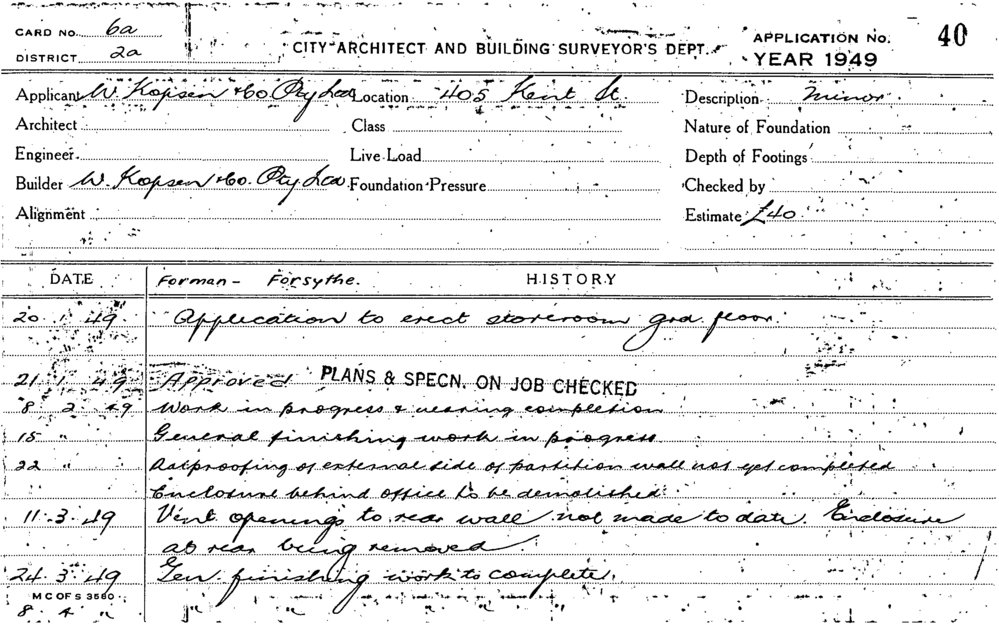 CARD No. 6a
DISTRICT 2a
CITY ARCHITECT AND BUILDING SURVEYOR'S DEPT.
APPLICATION No. 40
YEAR 1949
Applicant W. Kopsen & Co. Pty Ltd Location 405 Kent St Description Minor
Architect Class Nature of Foundation
Engineer Live Load Depth of Footings
Builder W. Kopsen & Co. Pty Ltd Foundation Pressure Checked by
Alignment Estimate £40
DATE Forman - Forsythe. HISTORY
20 1 49 Application to erect storeroom grd. floor.
21 1 49 Approved PLANS & SPECN. ON JOB CHECKED
8 2 49 Work in progress & nearing completion
15 " General finishing work in progress
22 " Ratproofing of external side of partition wall not yet completed
Enclosure behind office to be demolished
11.3.49 Vent openings to rear wall not made to date. Enclosure
at rear being removed.
24.3.49 Gen. finishing work to complete.
M C OF S 3580
8 4 " " " " " "